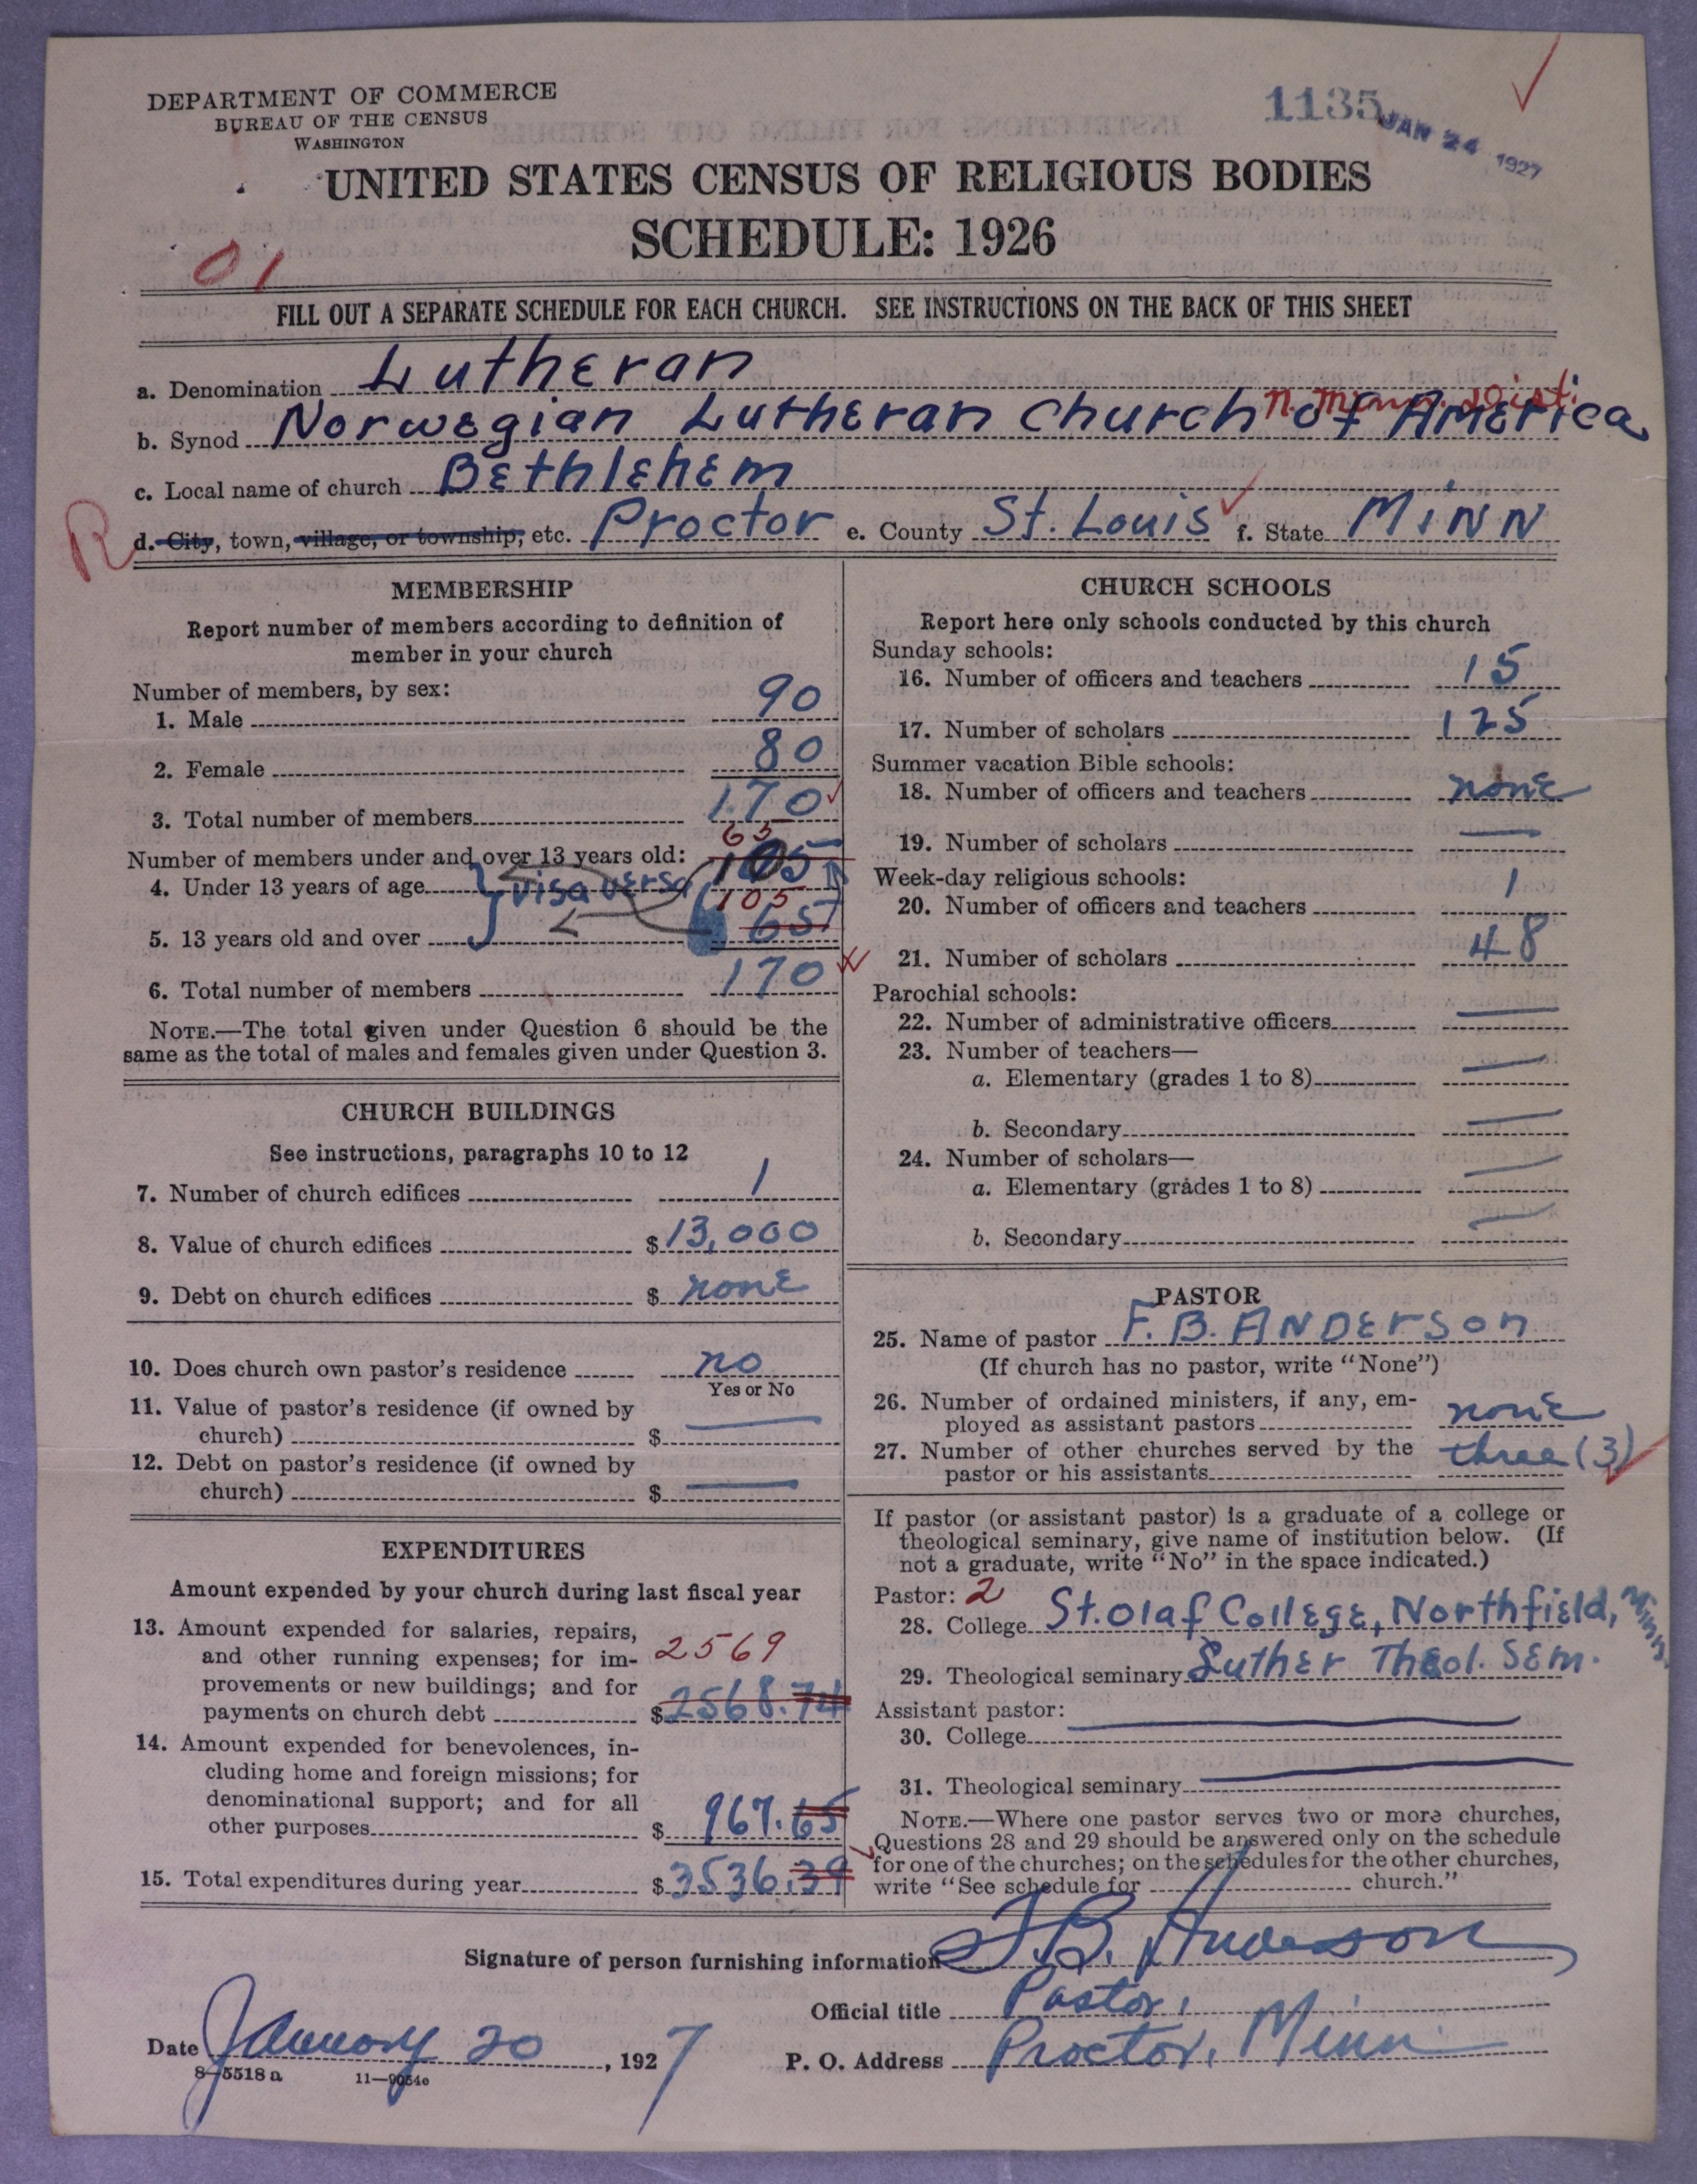 DEPARTMENT OF COMMERCE
BUREAU OF THE CENSUS
WASHINGTON
1135
JAN 24 1927
UNITED STATES CENSUS OF RELIGIOUS BODIES
SCHEDULE: 1926
01
FILL OUT A SEPARATE SCHEDULE FOR EACH CHURCH. SEE INSTRUCTIONS ON THE BACK OF THIS SHEET
a. Denomination Lutheran
n. Minn. Dist.
b. Synod Norwegian Lutheran Church of America
c. Local name of church Bethlehem
R
d. City, town, village, or township, etc. Proctor e. County St. Louis f. State MINN
MEMBERSHIP
Report number of members according to definition of
member in your church
Number of members, by sex:
1. Male 90
2. Female 80
3. Total number of members 170
Number of members under and over 13 years old: 65
4. Under 13 years of age 105
visa versa
105
5. 13 years old and over 65
6. Total number of members 170
NOTE.—The total given under Question 6 should be the
same as the total of males and females given under Question 3.
CHURCH BUILDINGS
See instructions, paragraphs 10 to 12
7. Number of church edifices 1
8. Value of church edifices $13,000
9. Debt on church edifices $ none
10. Does church own pastor's residence no
Yes or No
11. Value of pastor's residence (if owned by
church) $ —
12. Debt on pastor's residence (if owned by
church) $ —
EXPENDITURES
Amount expended by your church during last fiscal year
13. Amount expended for salaries, repairs,
and other running expenses; for im- 2569
provements or new buildings; and for
payments on church debt $2568.74
14. Amount expended for benevolences, in-
cluding home and foreign missions; for
denominational support; and for all
other purposes $ 967.65
15. Total expenditures during year $3536.39
CHURCH SCHOOLS
Report here only schools conducted by this church
Sunday schools:
16. Number of officers and teachers 15
17. Number of scholars 125
Summer vacation Bible schools:
18. Number of officers and teachers none
19. Number of scholars —
Week-day religious schools:
20. Number of officers and teachers 1
21. Number of scholars 48
Parochial schools:
22. Number of administrative officers —
23. Number of teachers—
a. Elementary (grades 1 to 8) —
b. Secondary —
24. Number of scholars—
a. Elementary (grades 1 to 8) —
b. Secondary —
PASTOR
25. Name of pastor F. B. ANDERSON
(If church has no pastor, write "None")
26. Number of ordained ministers, if any, em-
ployed as assistant pastors none
27. Number of other churches served by the
pastor or his assistants three (3)
If pastor (or assistant pastor) is a graduate of a college or
theological seminary, give name of institution below. (If
not a graduate, write "No" in the space indicated.)
Pastor: 2
28. College St. Olaf College, Northfield, Minn.
29. Theological seminary Luther Theol. Sem.
Assistant pastor:
30. College —
31. Theological seminary —
NOTE.—Where one pastor serves two or more churches,
Questions 28 and 29 should be answered only on the schedule
for one of the churches; on the schedules for the other churches,
write "See schedule for church."
Signature of person furnishing information F. B. Anderson
Official title Pastor,
Date January 20, 1927 P. O. Address Proctor, Minn.
8-5518a 11-9054c